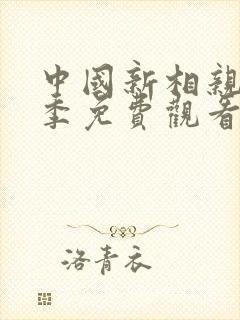 中國新相親
季免費觀看
洛青衣